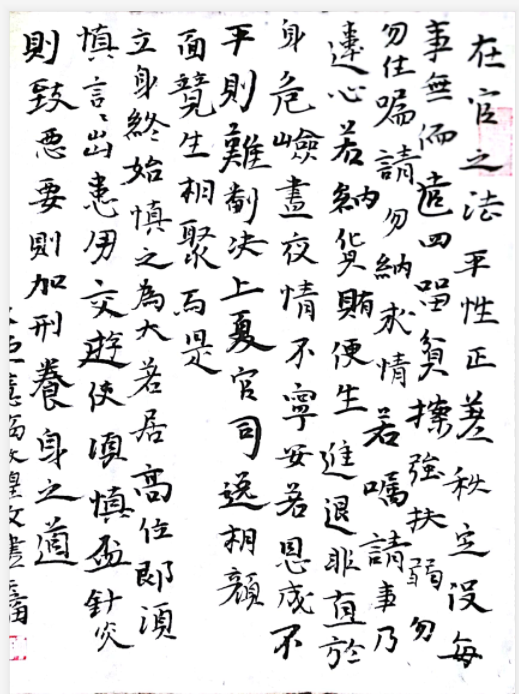 在官之法平性正差秋定没每
事無偏遣四留貧擽強扶弱勿
勿住囑請勿納求情若囑請事乃
違心若納貨賄便生進退非直於
身危嶮晝夜情不寧安若恩成不
平則難剬决上夏官司逸相顔
面競生相聚焉是
立身終始慎之為大若居高位郎須
慎言〻出患伊交遊使須慎盃針灸
則致惡要則加刑養身之道
敦煌文書